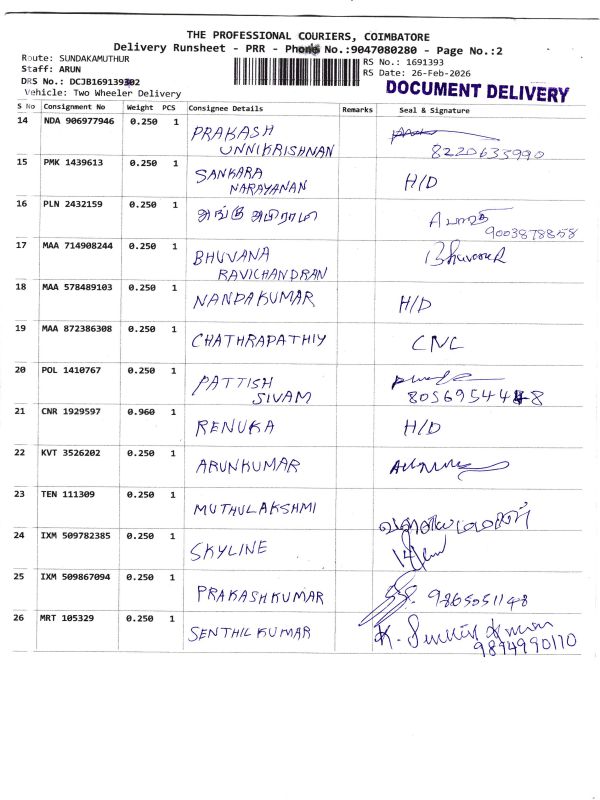 THE PROFESSIONAL COURIERS, COIMBATORE
Delivery Runsheet - PRR - Phone No.:9047080280 - Page No.:2
Route: SUNDAKAMUTHUR
RS No.: 1691393
Staff: ARUN
RS Date: 26-Feb-2026
DRS No.: DCJB169139302
DOCUMENT DELIVERY
Vehicle: Two Wheeler Delivery
S No Consignment No Weight PCS Consignee Details Remarks Seal & Signature
14 NDA 906977946 0.250 1 PRAKASH
UNNIKRISHNAN 8220633990
15 PMK 1439613 0.250 1 SANKARA H/D
NARAYANAN
16 PLN 2432159 0.250 1
9003878858
17 MAA 714908244 0.250 1 BHUVANA
RAVICHANDRAN
18 MAA 578489103 0.250 1 NANDAKUMAR H/D
19 MAA 872386308 0.250 1 CHATHRAPATHIY CNC
20 POL 1410767 0.250 1 PATTISH
SIVAM
21 CNR 1929597 0.960 1 RENUKA H/D
22 KVT 3526202 0.250 1 ARUNKUMAR
23 TEN 111309 0.250 1 MUTHULAKSHMI
24 IXM 509782385 0.250 1 SKYLINE
25 IXM 509867094 0.250 1 PRAKASHKUMAR 9865051148
26 MRT 105329 0.250 1 SENTHILKUMAR
9894990110